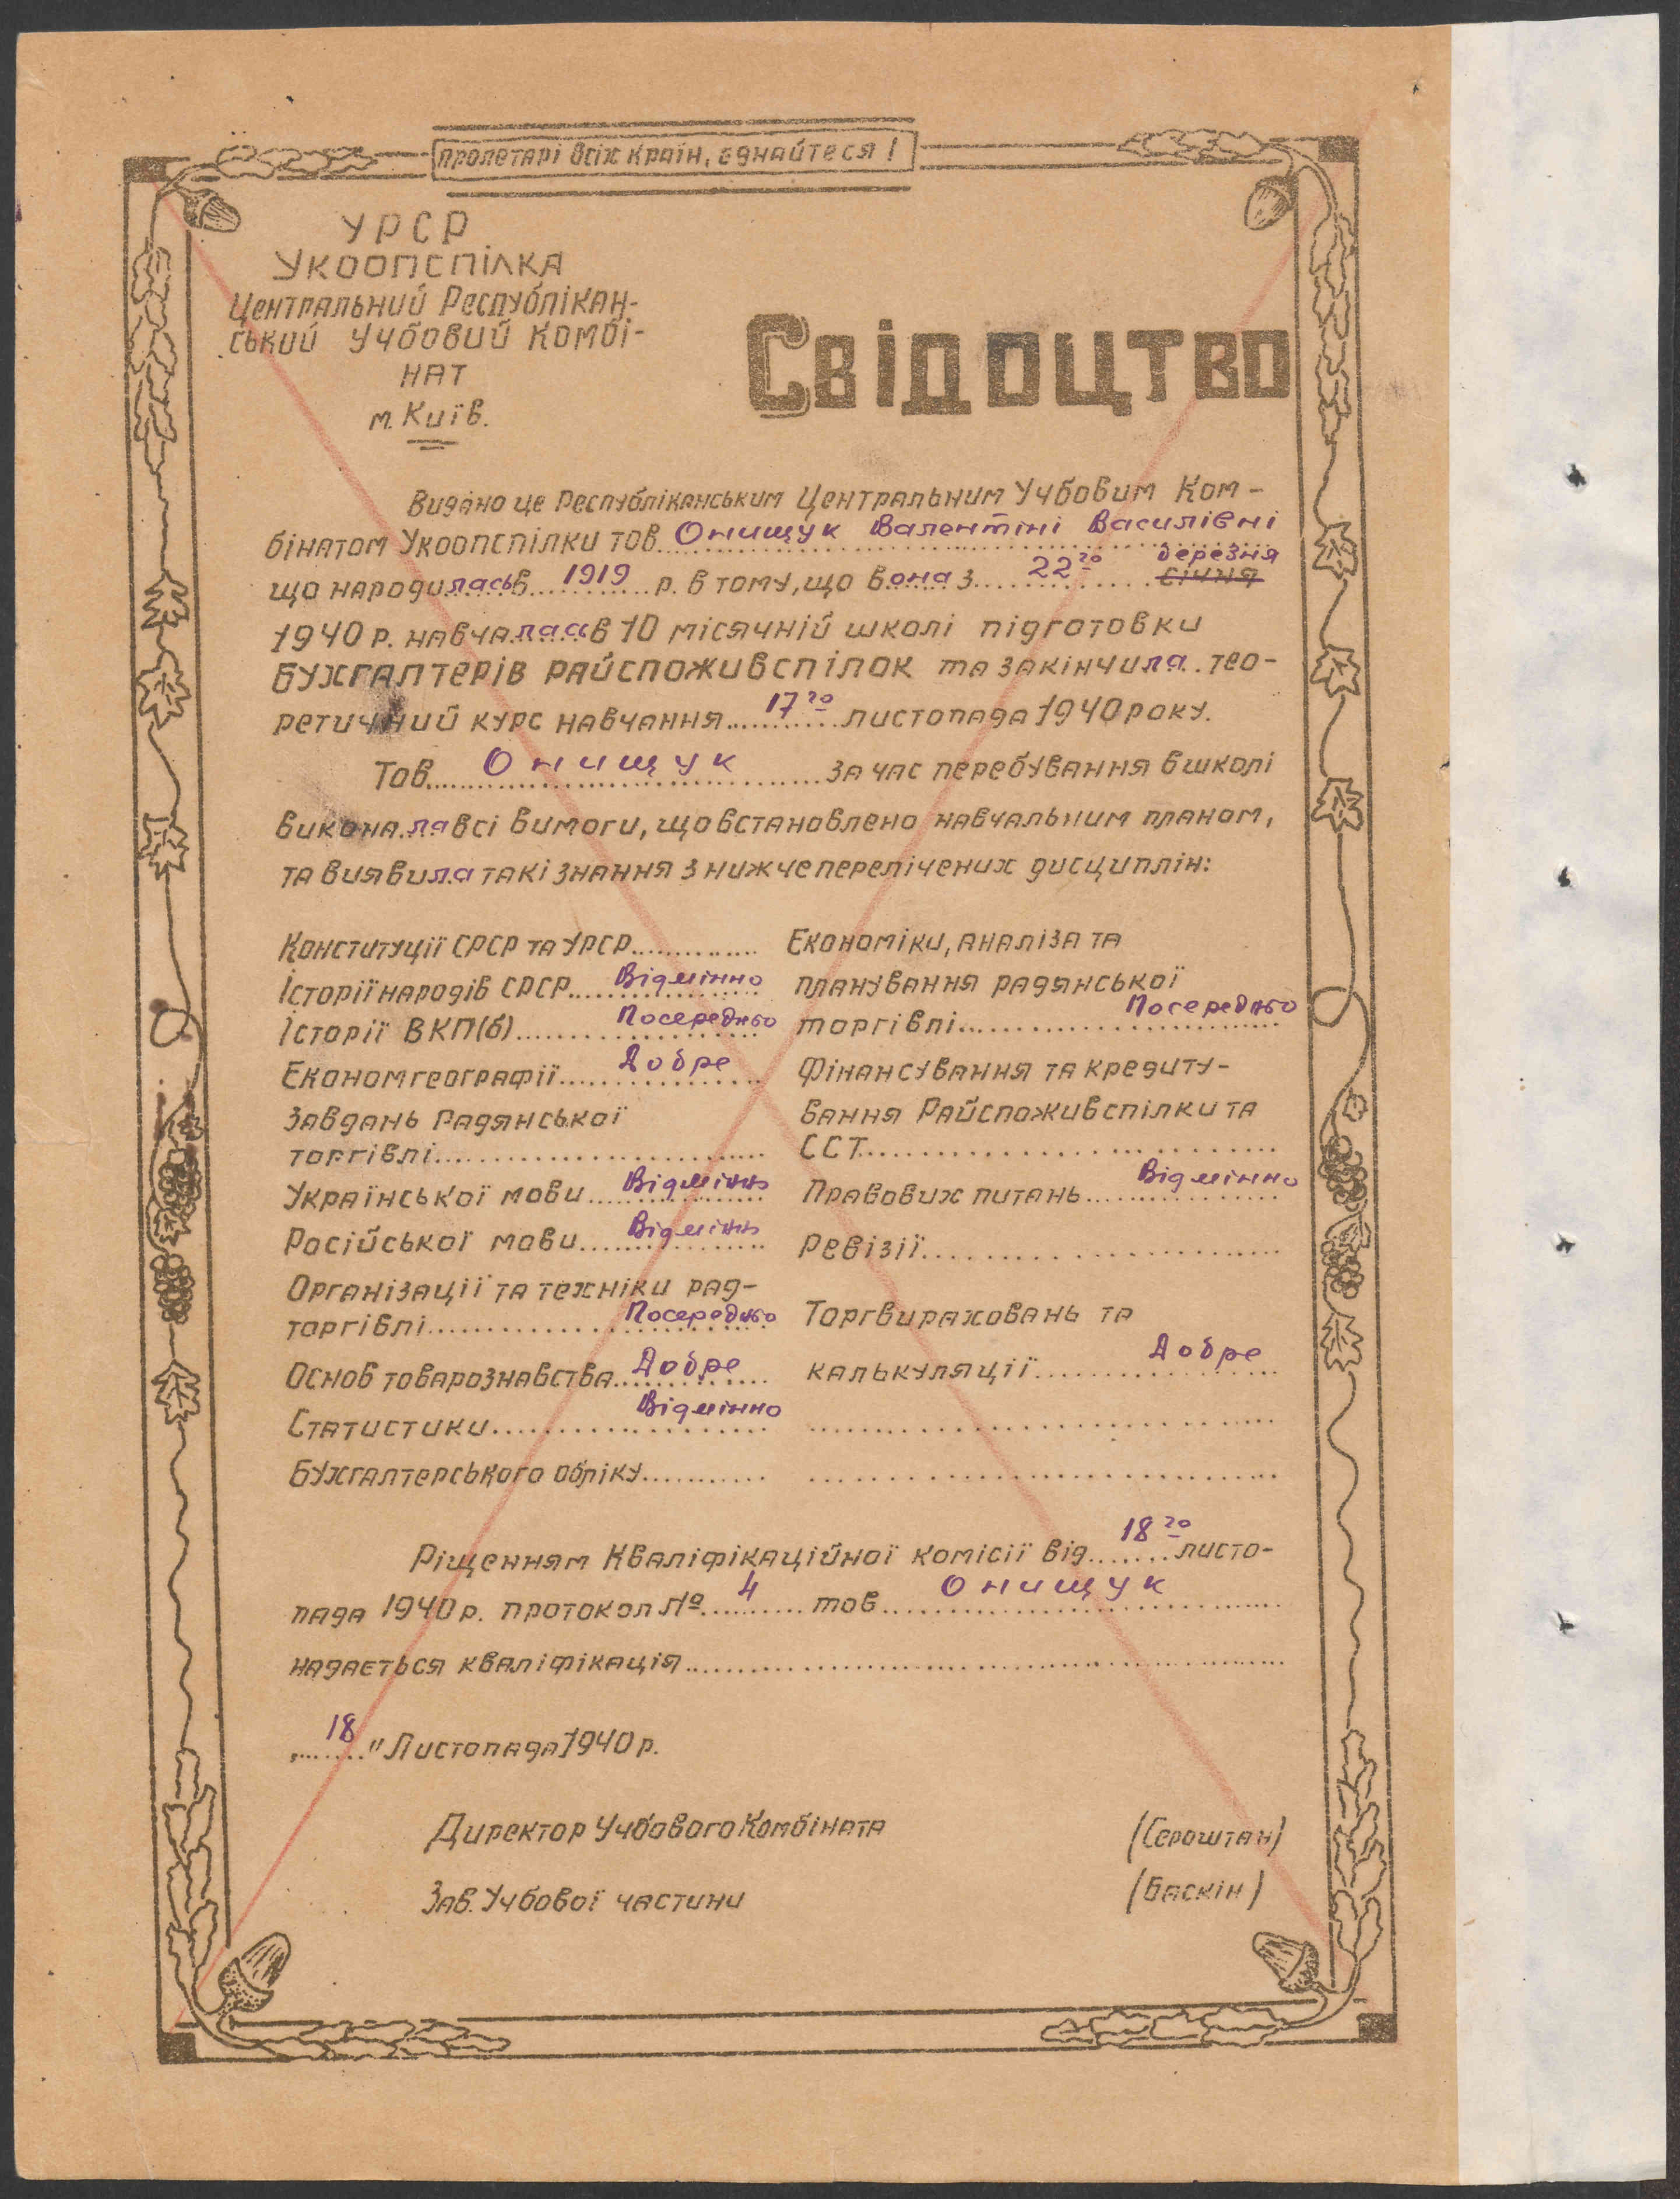 Пролетарі всіх країн, єднайтеся!
УРСР
Укоопспілка
Центральний Республікан-
ський Учбовий Комбі-
нат
м. Київ.
Свідоцтво
Видано це Республіканським Центральним Учбовим Ком-
бінатом Укоопспілки тов. Онищук Валентіні Василівні
що народилась в 1919 р. в тому, що вона з 22го березня січня
1940 р. навчалась в 10 місячній школі підготовки
бухгалтерів райспоживспілок та закінчила тео-
ретичний курс навчання 17го листопада 1940 року.
Тов. Онищук за час перебування в школі
виконала всі вимоги, що встановлено навчальним планом,
та виявила такі знання з нижчеперелічених дисциплін:
Конституції СРСР та УРСР
Історії народів СРСР Відмінно
Історії ВКП(б) Посередньо
Економгеографії Добре
Завдань Радянської
торгівлі
Української мови Відмінн
Російської мови Відмінн
Організації та техніки рад-
торгівлі Посередньо
Основ товарознавства Добре
Статистики Відмінно
Бухгалтерського обліку
Економіки, аналіза та
планування радянської
торгівлі Посередньо
Фінансування та кредиту-
вання Райспоживспілки та
ССТ
Правових питань Відмінно
Ревізії
Торгвираховань та
калькуляції Добре
Ріщенням Кваліфікаційної комісії від 18го листо-
пада 1940 р. протокол № 4 тов Онищук
надається кваліфікація
„ 18 " Листопада 1940 р.
Директор Учбового Комбіната (Сероштан)
Зав. Учбової частини (Баскін)